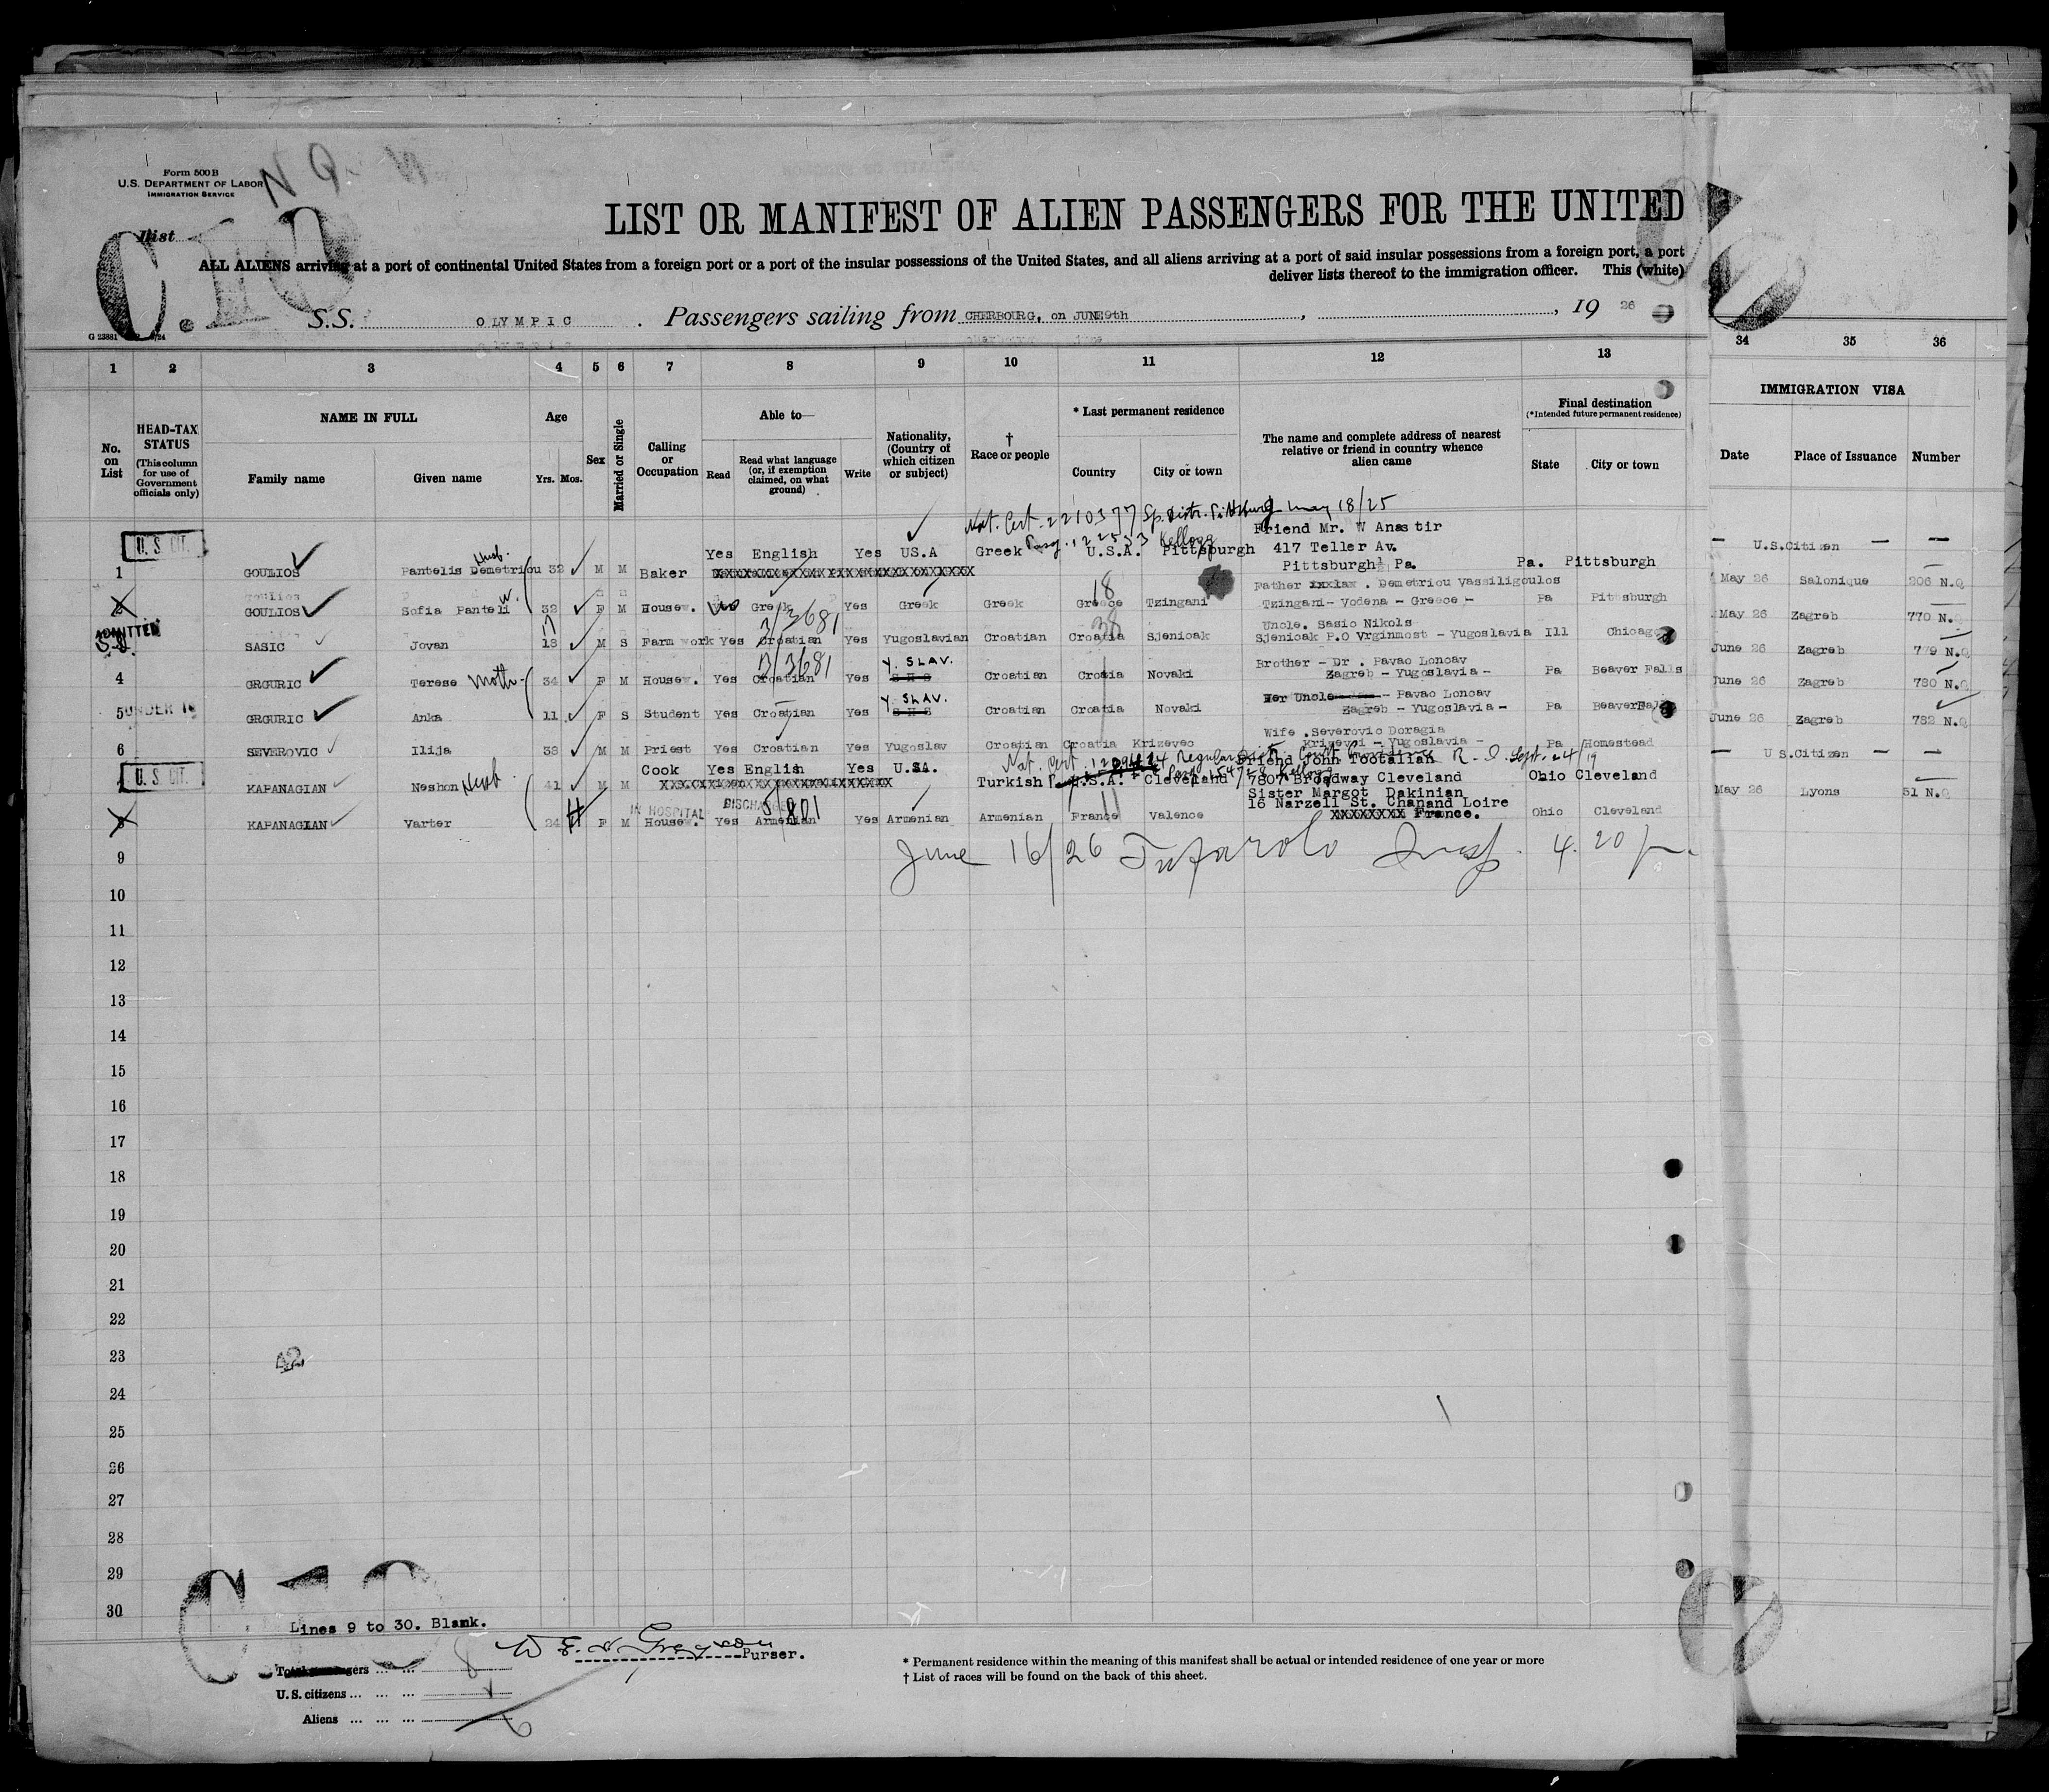 Form 500 B
U.S. DEPARTMENT OF LABOR
IMMIGRATION SERVICE
N Q.
List
LIST OR MANIFEST OF ALIEN PASSENGERS FOR THE UNITED
ALL ALIENS arriving at a port of continental United States from a foreign port or a port of the insular possessions of the United States, and all aliens arriving at a port of said insular possessions from a foreign port, a port
deliver lists thereof to the immigration officer. This (white)
S.S. OLYMPIC . Passengers sailing from CHERBOURG, on JUNE9th , , 19 26
1 2 3 4 5 6 7 8 9 10 11 12 13 34 35 36
No. on List
HEAD-TAX STATUS (This column for use of Government officials only)
NAME IN FULL
Family name Given name
Age
Yrs. Mos.
Sex
Married or Single
Calling or Occupation
Able to—
Read Read what language (or, if exemption claimed, on what ground) Write
Nationality, (Country of which citizen or subject)
† Race or people
* Last permanent residence
Country City or town
The name and complete address of nearest relative or friend in country whence alien came
Final destination
(*Intended future permanent residence)
State City or town
IMMIGRATION VISA
Date Place of Issuance Number
Nat. Cert. 2210377 Sp. Distr. Pittsburg May 18/25
Pasp. 122553 Kellogg
U.S. CIT.
1 GOULIOS Pantelis Demetriou Husb. 32 M M Baker Yes English Yes US.A Greek U.S.A. Pittsburgh Friend Mr. W Anastir
417 Teller Av.
Pittsburgh Pa. Pa. Pittsburgh — U.S.Citizen — —
2 GOULIOS Sofia Panteli W. 32 F M Housew. Yes Greek Yes Greek Greek Greece Tzingani 18 Father . Demetriou Vassiligoulos
Tzingani- Vodena - Greece - Pa Pittsburgh May 26 Salonique 206 N.Q
ADMITTED
SASIC Jovan 17 18 M S Farm work Yes Croatian Yes Yugoslavian Croatian Croatia Sjenicak 38 3/3681 Uncle. Sasic Nikols
Sjenicak P.O Vrginmost - Yugoslavia Ill Chicago May 26 Zagreb 770 N.Q
4 GRGURIC Terese Moth- 34 F M Housew. Yes Croatian Yes Y. SLAV. S H S Croatian Croatia Novaki 3/3681 Brother - Dr . Pavao Loncav
Zagreb - Yugoslavia - Pa Beaver Falls June 26 Zagreb 779 N.Q
5 UNDER 16 GRGURIC Anka 11 F S Student Yes Croatian Yes Y SLAV. S H S Croatian Croatia Novaki Her Uncle - Pavao Loncav
Zagreb - Yugoslavia - Pa Beaver Falls June 26 Zagreb 780 N.Q
6 SEVEROVIC Ilija 38 M M Priest Yes Croatian Yes Yugoslav Croatian Croatia Krizevec Wife .Severovic Doragia
Krizevci - Yugoslavia - Pa Homestead June 26 Zagreb 782 N.Q
Nat. Cert. Regular Distr. Court Providence R. I. Sept. 24/19
U.S. CIT.
KAPANAGIAN Neshon Husb. 41 M M Cook Yes English Yes U.SA. Turkish U.S.A. Cleveland Friend John Tootalian
7807 Broadway Cleveland Ohio Cleveland — U S.Citizen — —
8 KAPANAGIAN Varter 24 F M Housew. Yes Armenian Yes Armenian Armenian France Valence 11 IN HOSPITAL DISCHARGED 5/801 Sister Margot Dakinian
16 Narzell St. Chanand Loire
XXXXXXXX France. Ohio Cleveland May 26 Lyons 51 N.Q
9 June 16/26 Tufarolo Insp. 4.20 p.m.
10
11
12
13
14
15
16
17
18
19
20
21
22
23
24
25
26
27
28
29
30
Lines 9 to 30. Blank.
Purser.
Total passengers ... ...
U.S. citizens ... ... ...
Aliens ... ... ... 6
* Permanent residence within the meaning of this manifest shall be actual or intended residence of one year or more
† List of races will be found on the back of this sheet.